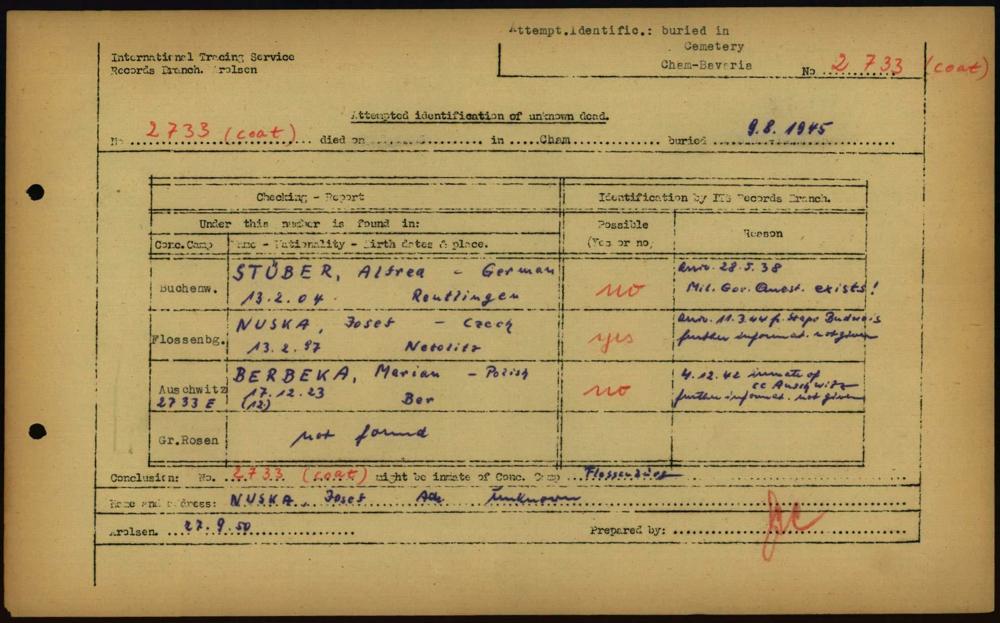 Attempt.Identific.: buried in
Cemetery
Cham-Bavaria
No 2 733 (coat)
International Tracing Service
Records Branch. Arolsen
Attempted identification of unknown dead.
No 2733 (coat) died on in Cham buried 9.8.1945
Checking - Report Identification by ITS Records Branch.
Under this number is found in: Possible (Yes or no) Reason
Conc.Camp Name - Nationality - Birth dates & place.
Buchenw. STÜBER, Alfred - German no 28.5.38
13.2.04. Reutlingen Mil. Gov. Quest. exists!
Flossenbg. NUSKA, Josef - Czech yes 11.3.44 f. Stapo Budweis
13.2.97 Netolitz further informat. not given
Auschwitz BERBEKA, Marian - Polish no 4.12.42 inmate of
2733 E 17.12.23 Ber cc Auschwitz
(12) further informat. not given
Gr.Rosen not found
Conclusion: No. 2733 (coat) might be inmate of Conc. Camp Flossenbürg
Name and address: NUSKA, Josef Ad. unknown
Arolsen. 27.9.50 Prepared by: